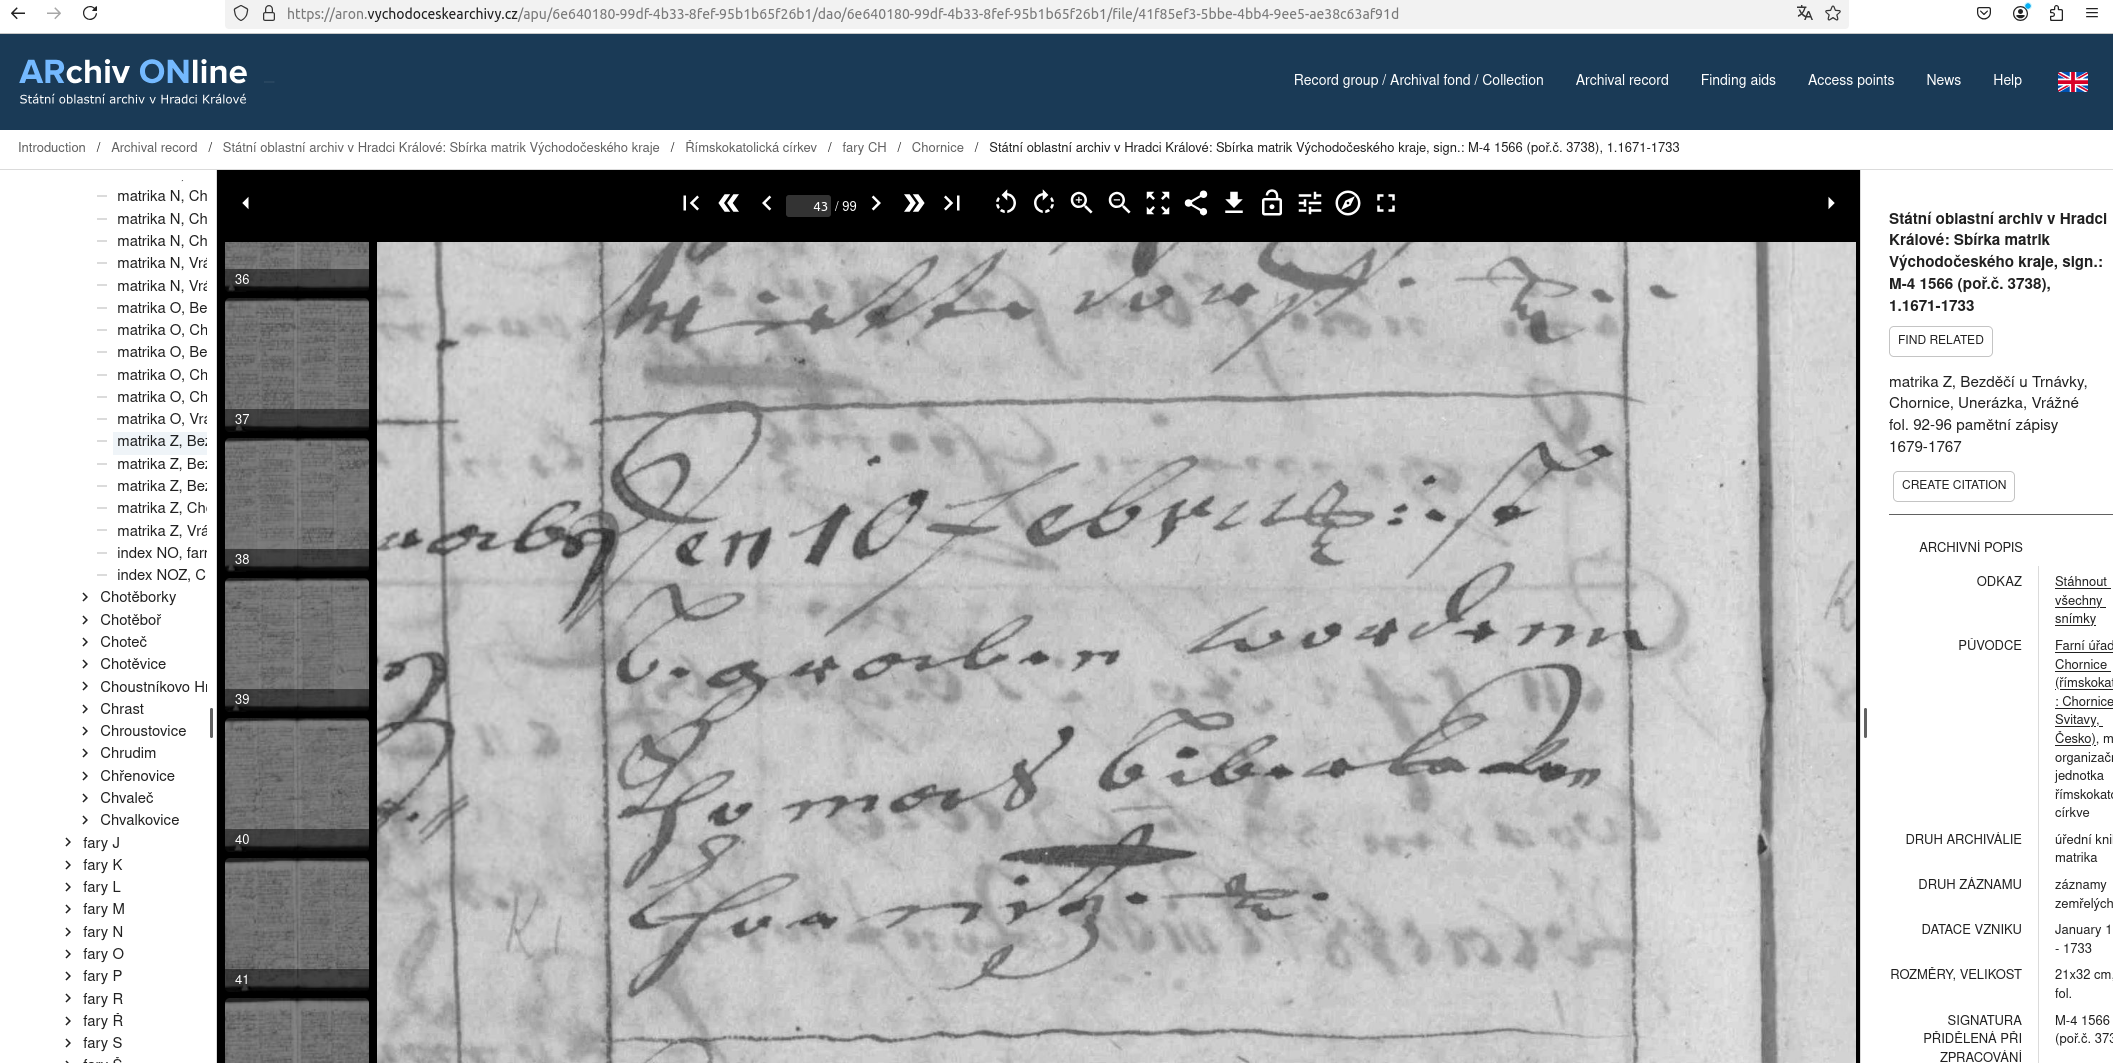 https://aron.vychodoceskearchivy.cz/apu/6e640180-99df-4b33-8fef-95b1b65f26b1/dao/6e640180-99df-4b33-8fef-95b1b65f26b1/file/41f85ef3-5bbe-4bb4-9ee5-ae38c63af91d
ARchiv ONline
Státní oblastní archiv v Hradci Králové
Record group / Archival fond / Collection
Archival record
Finding aids
Access points
News
Help
Introduction / Archival record / Státní oblastní archiv v Hradci Králové: Sbírka matrik Východočeského kraje / Římskokatolická církev / fary CH / Chornice / Státní oblastní archiv v Hradci Králové: Sbírka matrik Východočeského kraje, sign.: M-4 1566 (poř.č. 3738), 1.1671-1733
matrika N, Ch
matrika N, Ch
matrika N, Ch
matrika N, Vrá
matrika N, Vrá
matrika O, Be
matrika O, Ch
matrika O, Be
matrika O, Ch
matrika O, Ch
matrika O, Vrá
matrika Z, Bez
matrika Z, Bez
matrika Z, Bez
matrika Z, Cho
matrika Z, Vrá
index NO, farn
index NOZ, C
Chotěborky
Chotěboř
Choteč
Chotěvice
Choustníkovo Hr
Chrast
Chroustovice
Chrudim
Chřenovice
Chvaleč
Chvalkovice
fary J
fary K
fary L
fary M
fary N
fary O
fary P
fary R
fary Ř
fary S
fary Š
43 / 99
36
37
38
39
40
41
Den 10 Februarij: ist
begraben worden
Thomas
Státní oblastní archiv v Hradci
Králové: Sbírka matrik
Východočeského kraje, sign.:
M-4 1566 (poř.č. 3738),
1.1671-1733
FIND RELATED
matrika Z, Bezděčí u Trnávky,
Chornice, Unerázka, Vrážné
fol. 92-96 pamětní zápisy
1679-1767
CREATE CITATION
ARCHIVNÍ POPIS
ODKAZ
Stáhnout
všechny
snímky
PŮVODCE
Farní úřad
Chornice
(římskokat
: Chornice
Svitavy,
Česko), m
organizačn
jednotka
římskokato
církve
DRUH ARCHIVÁLIE
úřední kni
matrika
DRUH ZÁZNAMU
záznamy
zemřelých
DATACE VZNIKU
January 1
- 1733
ROZMĚRY, VELIKOST
21x32 cm,
fol.
SIGNATURA
PŘIDĚLENÁ PŘI
ZPRACOVÁNÍ
M-4 1566
(poř.č. 373